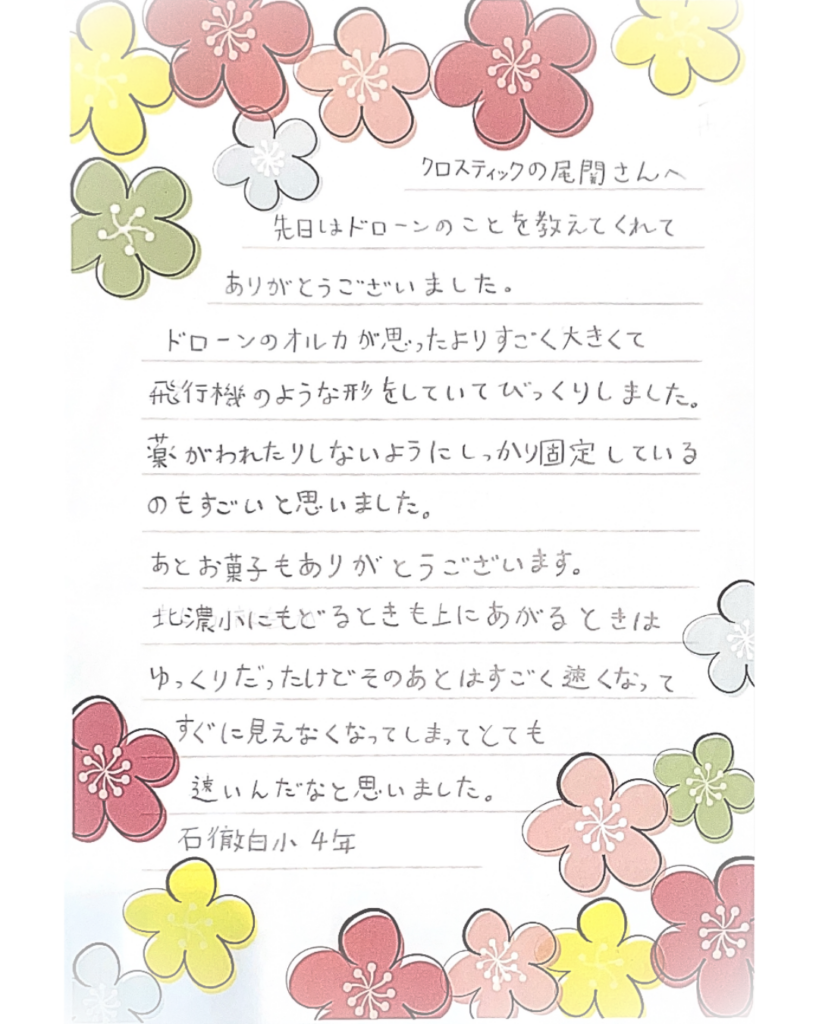 クロスティックの尾関さんへ
先日はドローンのことを教えてくれて
ありがとうございました。
ドローンのオルカが思ったよりすごく大きくて
飛行機のような形をしていてびっくりしました。
薬がわれたりしないようにしっかり固定している
のもすごいと思いました。
あとお菓子もありがとうございます。
北濃小にもどるときも上にあがるときは
ゆっくりだったけどそのあとはすごく速くなって
すぐに見えなくなってしまってとても
速いんだなと思いました。
石徹白小 4年